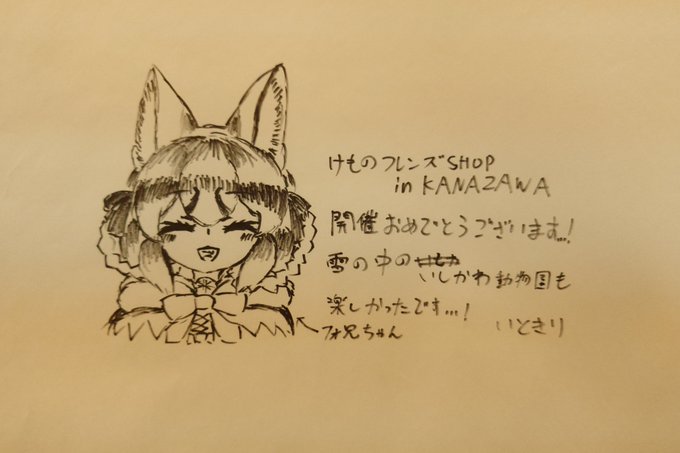 けものフレンズSHOP
in KANAZAWA
開催おめでとうございます…!
雪の中の いしかわ動物園も
楽しかったです…!
いときり
フォ兄ちゃん